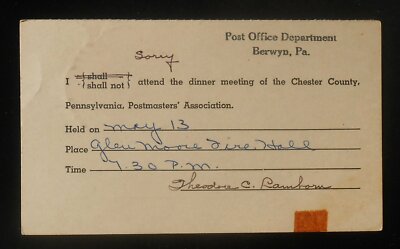 Post Office Department
Berwyn, Pa.
Sorry
I { shall
shall not } attend the dinner meeting of the Chester County,
Pennsylvania, Postmasters' Association.
Held on May 13
Place Glen Moore Fire Hall
Time 7.30 P.M.
Theodore C. Lamborn